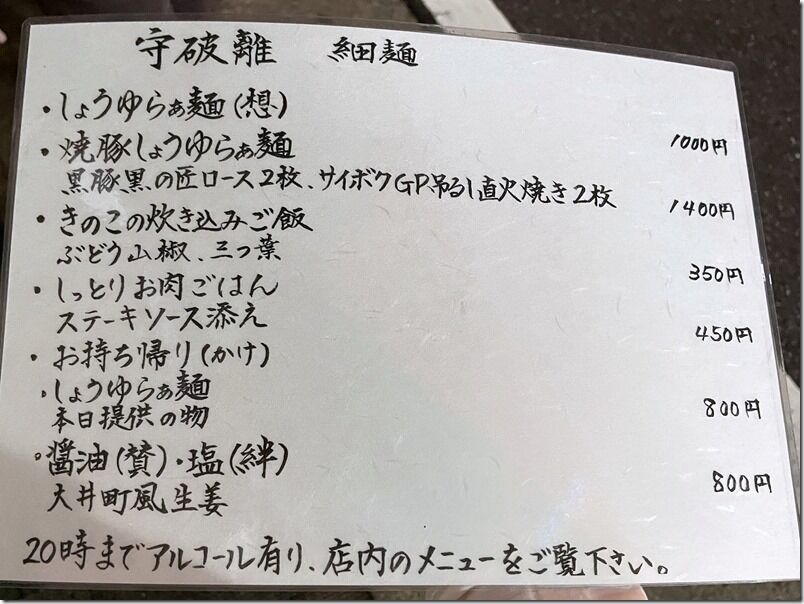 守破離 細麺
・しょうゆらぁ麺(想) 1000円
・焼豚しょうゆらぁ麺
黒豚黒の匠ロース2枚、サイボクGP吊るし直火焼き2枚 1400円
・きのこの炊き込みご飯
ぶどう山椒、三つ葉 350円
・しっとりお肉ごはん
ステーキソース添え 450円
・お持ち帰り(かけ)
・しょうゆらぁ麺
本日提供の物 800円
。醤油(賛)・塩(絆)
大井町風生姜 800円
20時までアルコール有り、店内のメニューをご覧下さい。